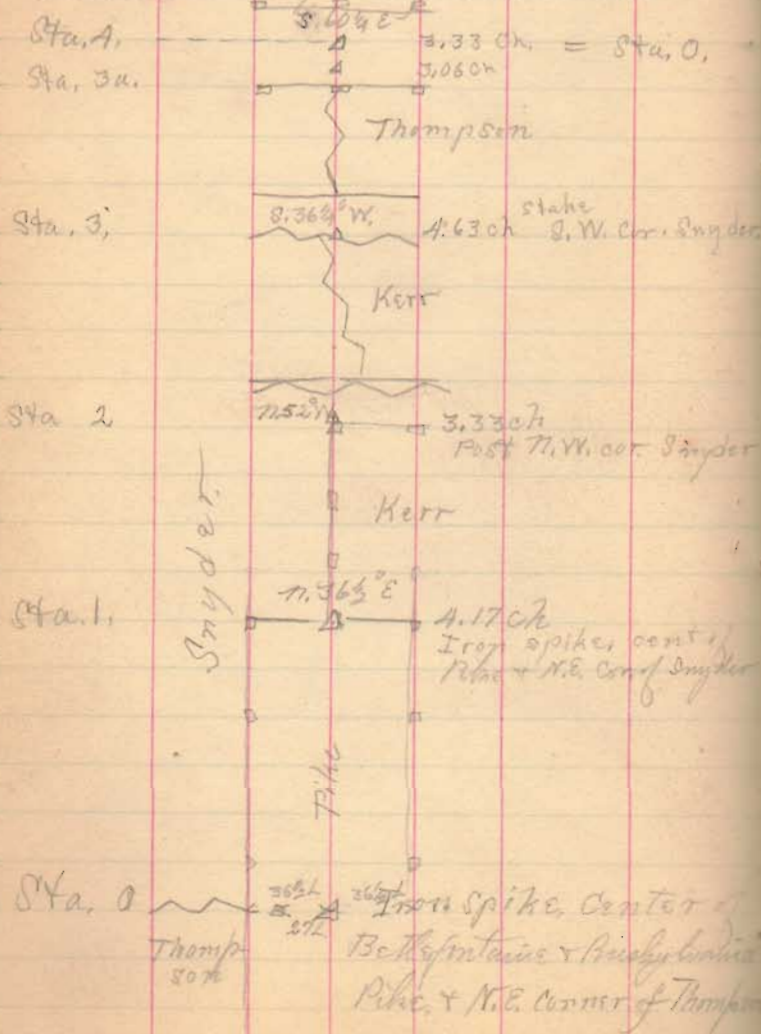 S. 60¼ E
Sta. 4. 3.33 Ch. = Sta. 0.
Sta. 3a. 3.06 Ch
Thompson
stake
Sta. 3, S. 36½° W. 4.63 ch S. W. Cor. Snyder
Kerr
Sta 2 N 52° W 3.33 ch
Post N. W. cor. Snyder
Snyder
Kerr
N. 36½° E
Sta. 1. 4.17 ch
Iron spike, cent. of
Pike & N.E. Cor. of Snyder
Pike
Sta. 0 36½ L 27L Iron Spike, Center of
Thomp Bellefontaine & Rushylvania
son Pike, & N.E. Corner of Thompson